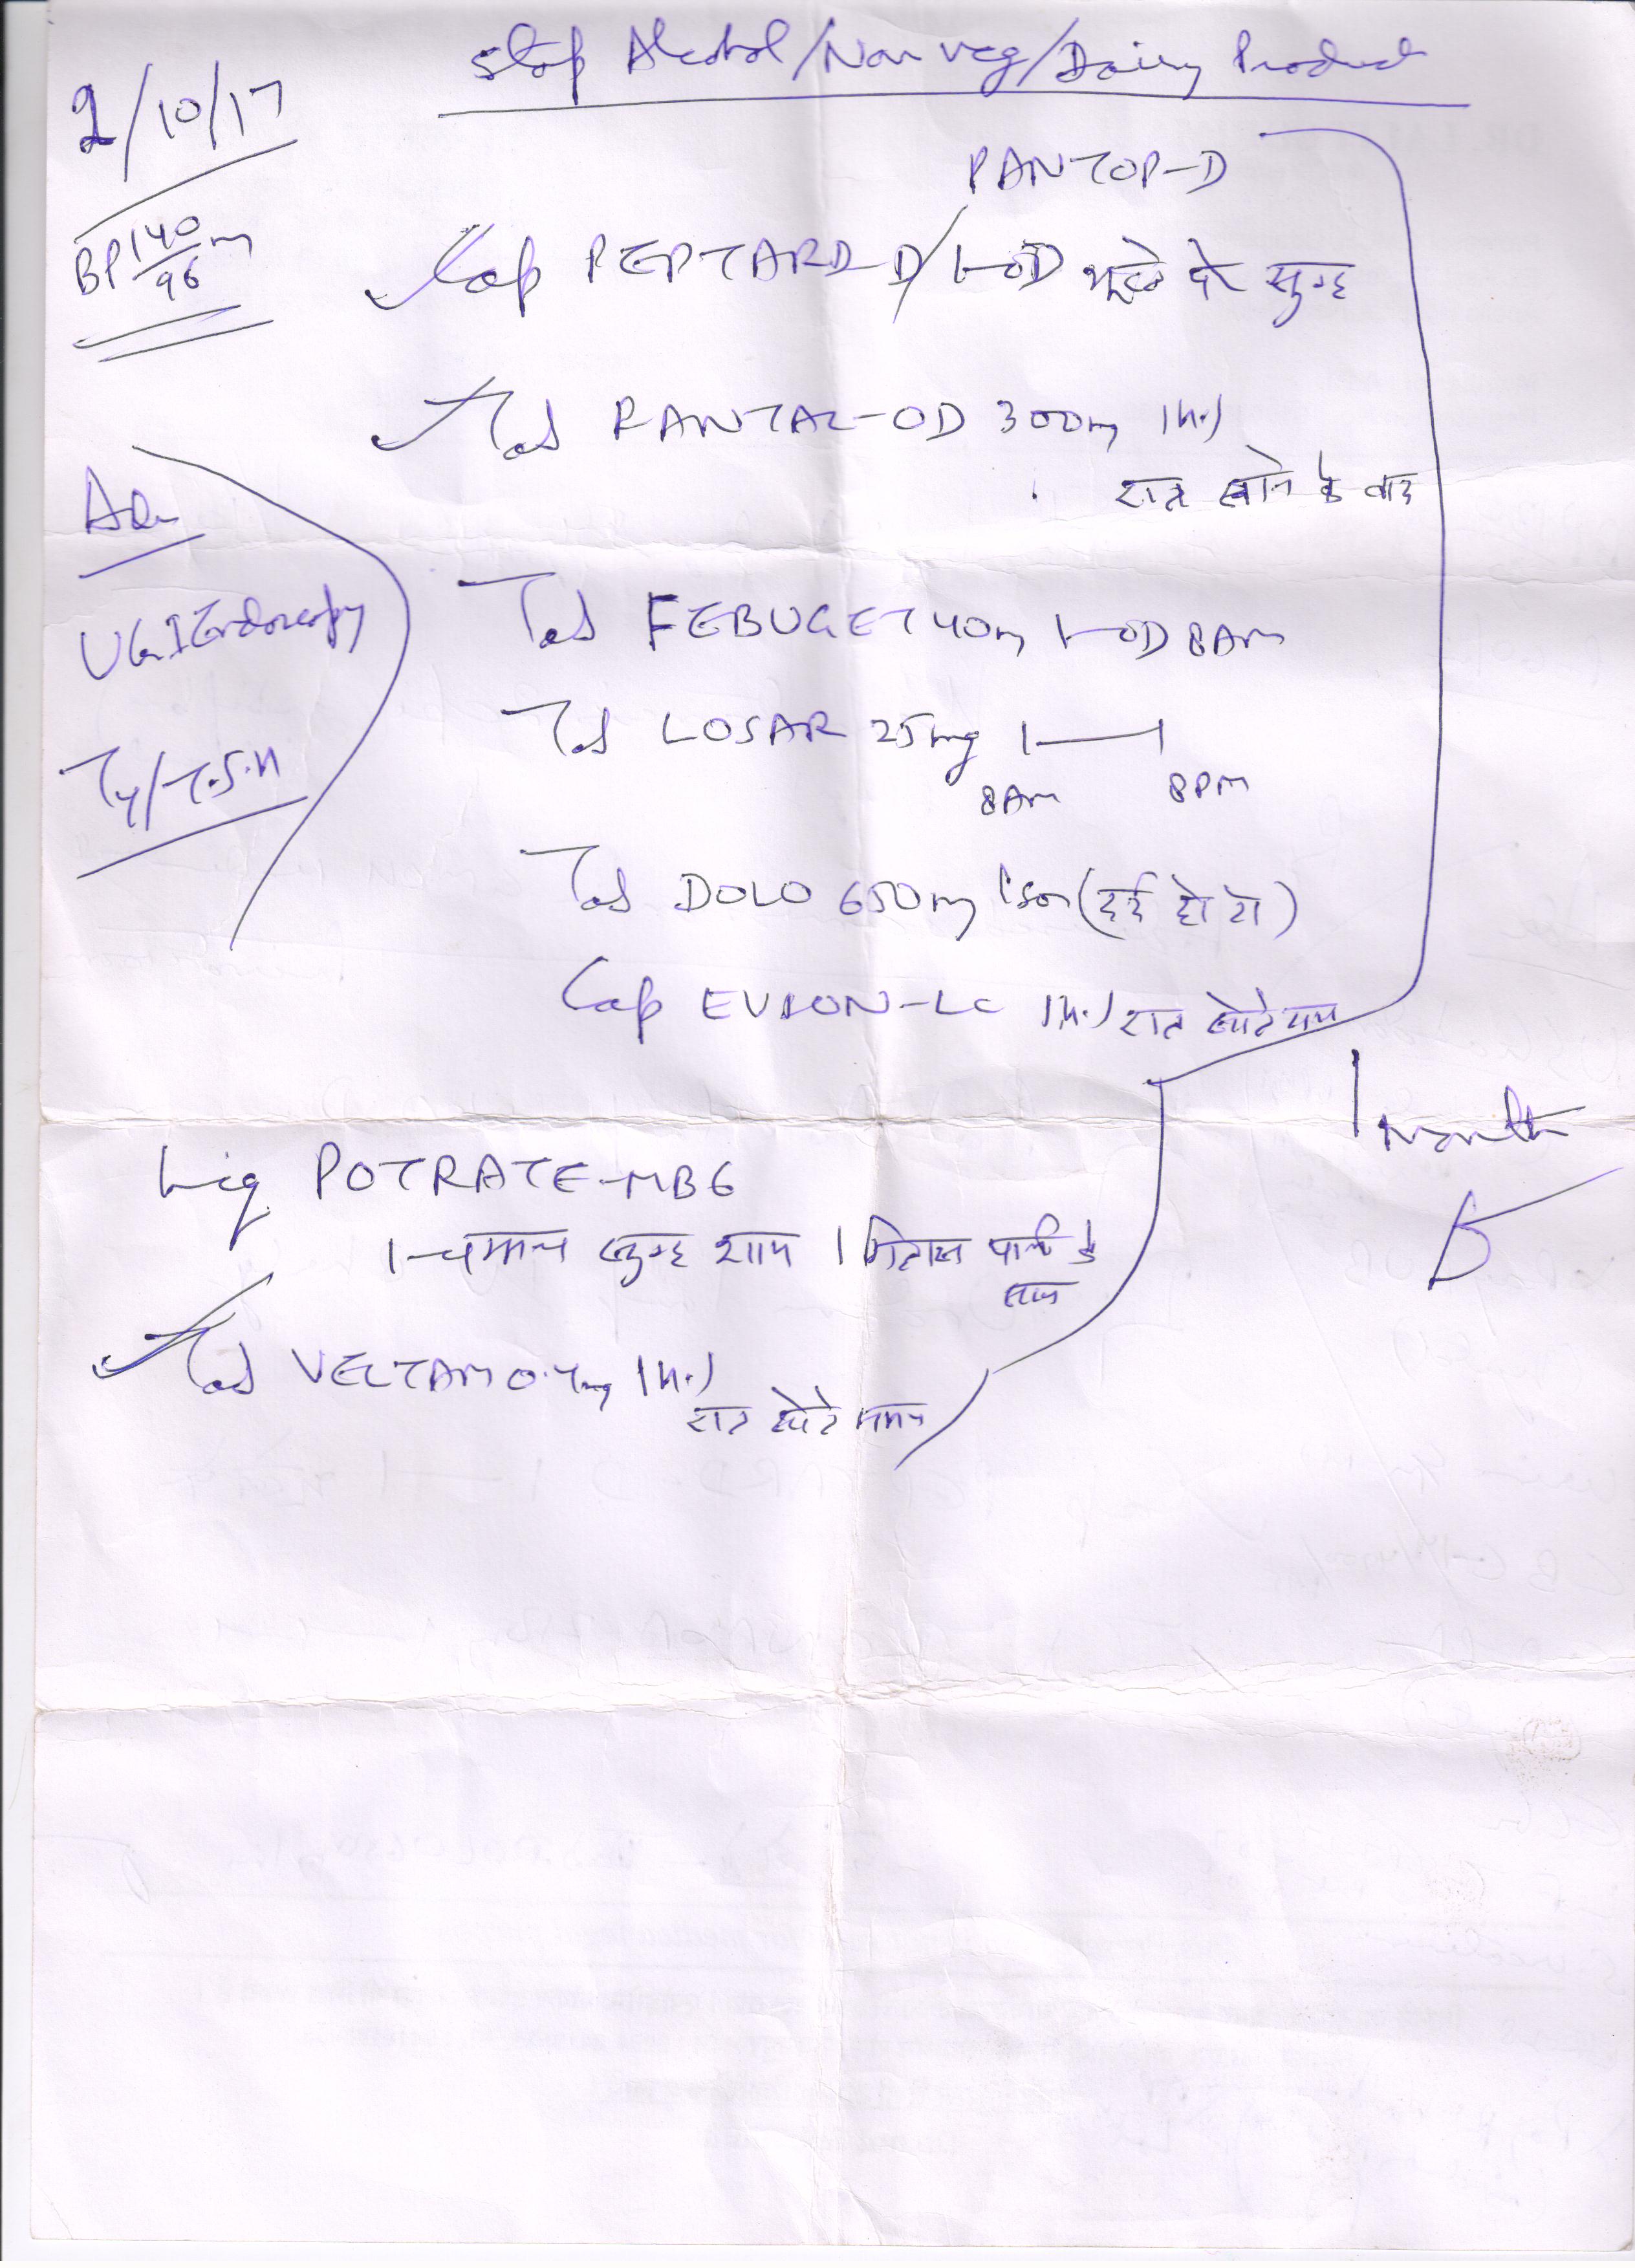 stop Alcohol/Non veg/Dairy Product
2/10/17
BP 140/96 m
PANTOP-D
Cap PEPTARD-D/ 1-OD भूखे पेट सुबह
Tab RANTAC-OD 300mg 1 H.S
रात खाने के बाद
Adv
UGI Endoscopy
T4/T.S.H
Tab FEBUGET 40mg 1-OD 8AM
Tab LOSAR 25mg 1—1
8AM 8PM
Tab DOLO 650mg 1 SOS (दर्द हो तो)
Cap EVION-LC 1 H.S रात सोते समय
1 month
Liq POTRATE-MB6
1-चम्मच सुबह शाम 1 गिलास पानी के
साथ
Tab VELTAM 0.4mg 1 H.S
रात सोते समय